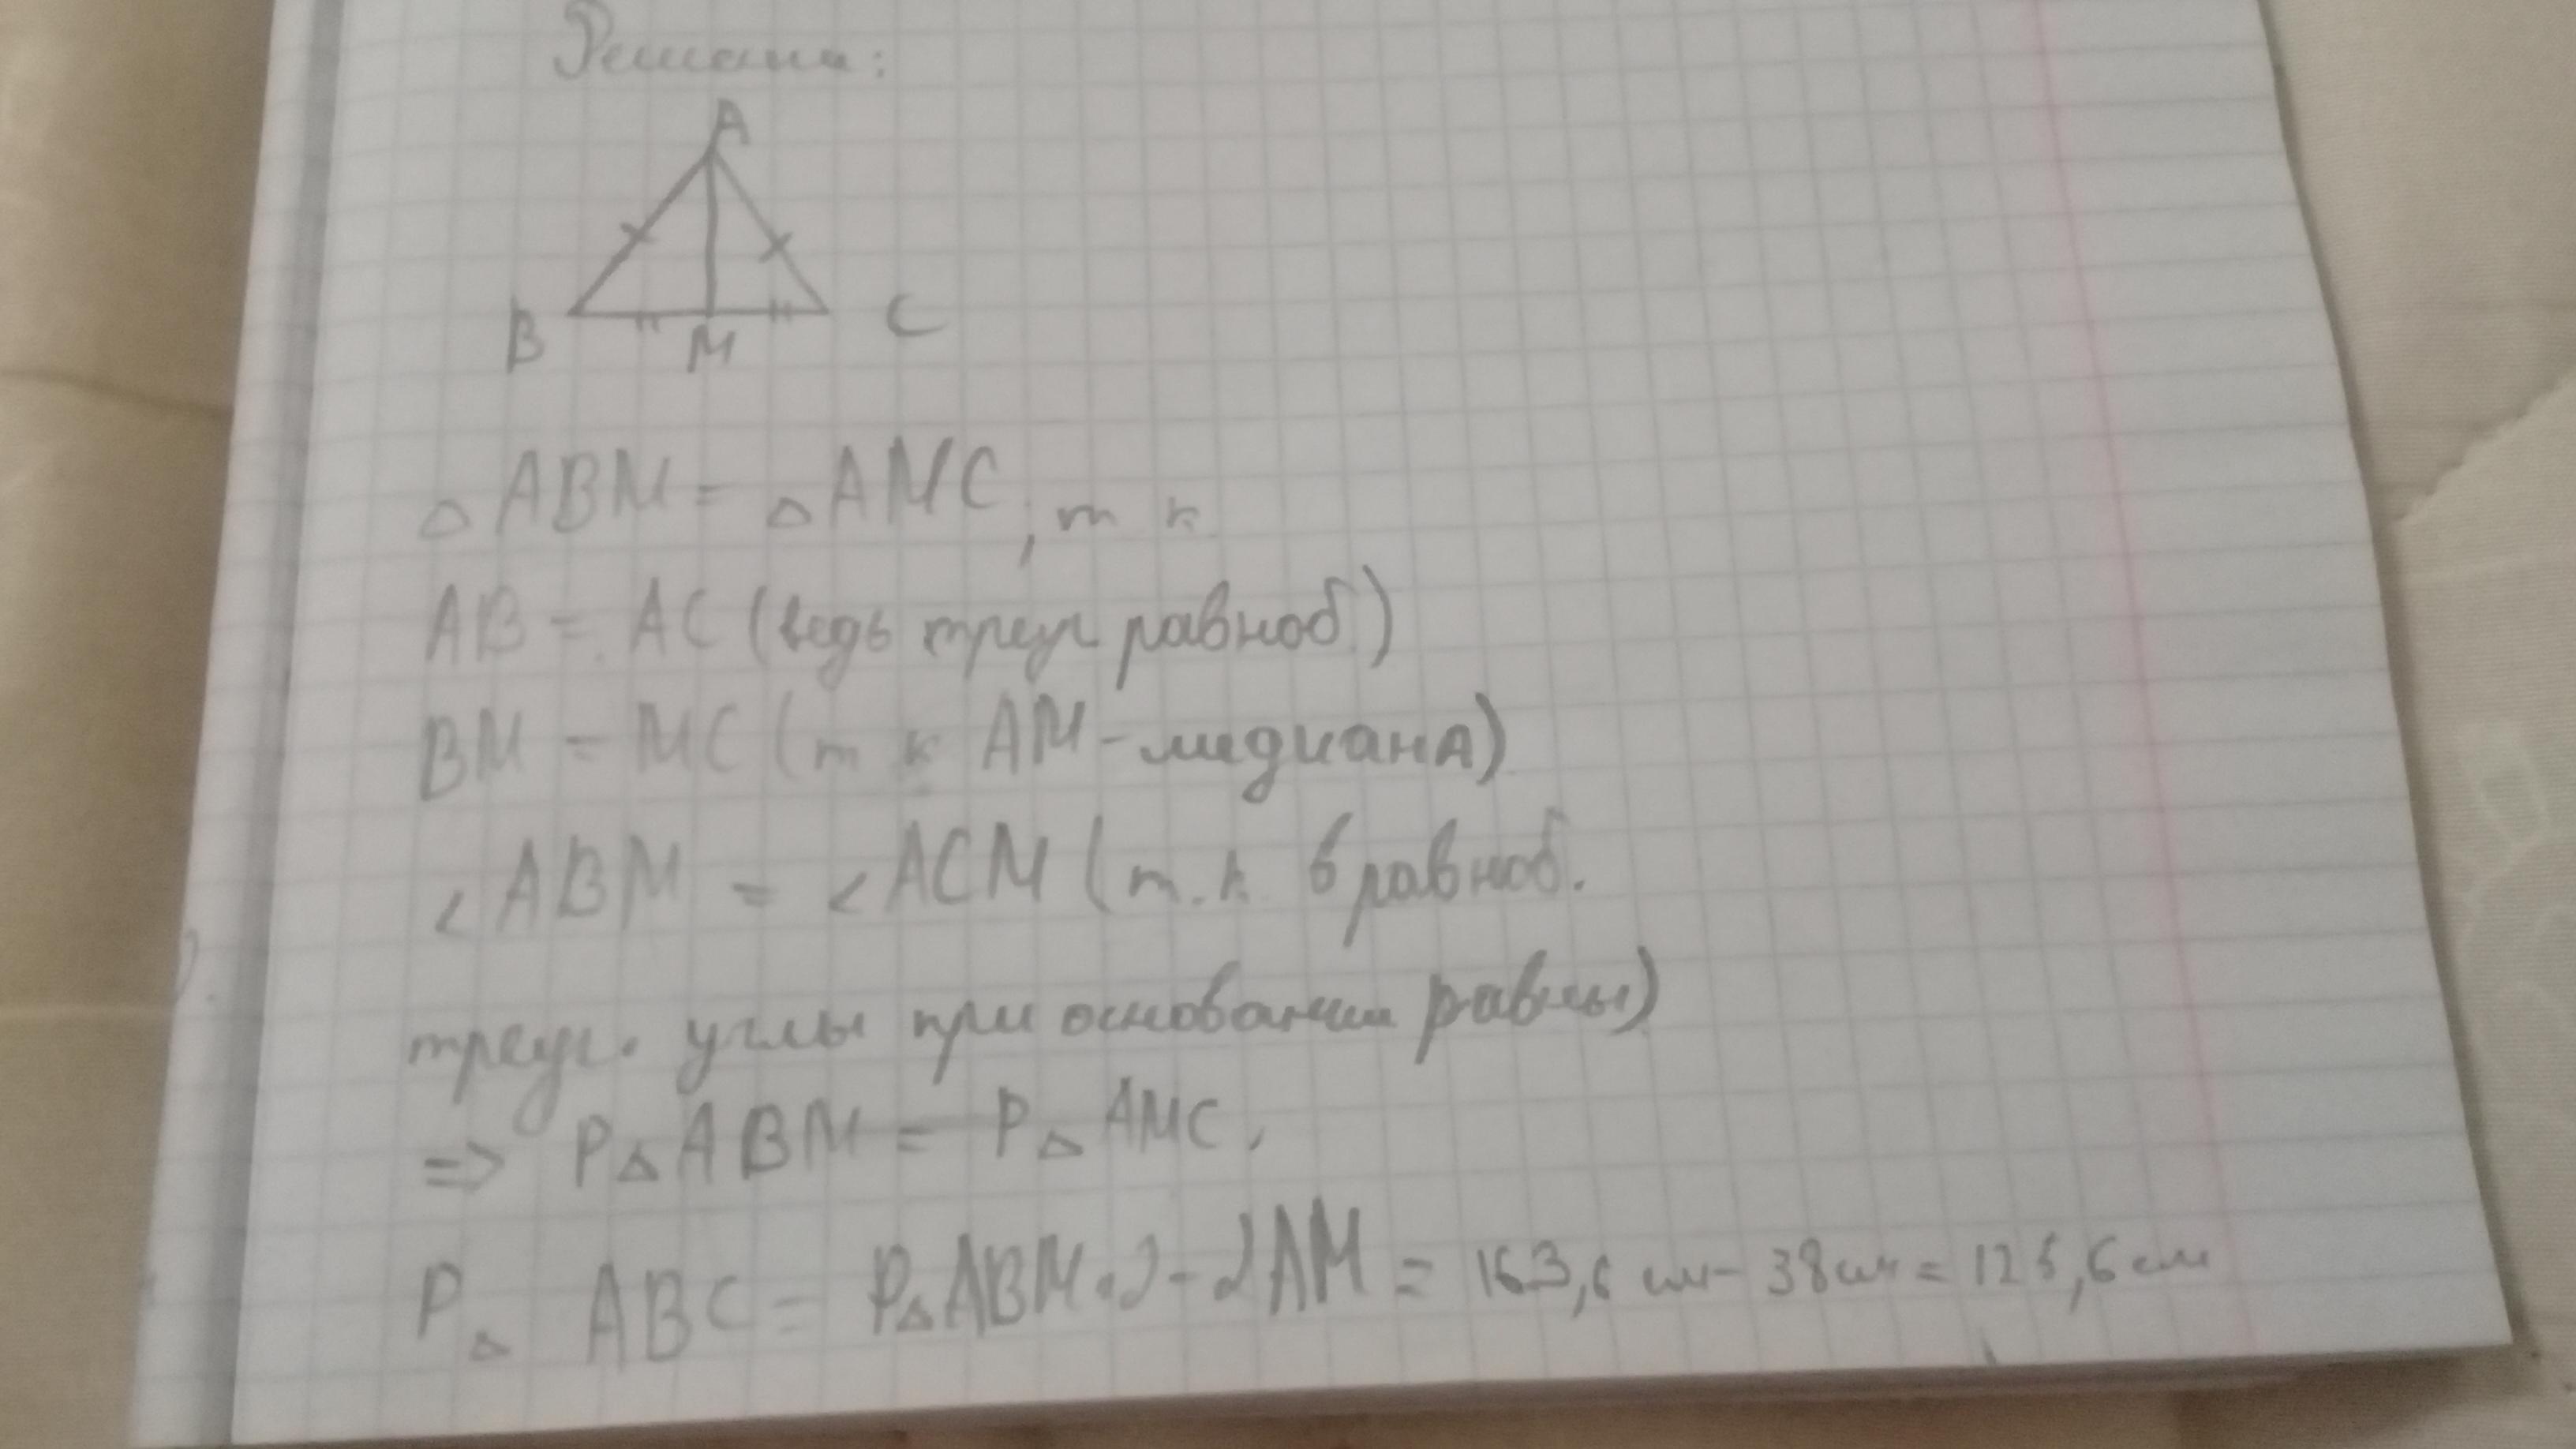 Решение:
A
B M C
△ABM = △AMC, т к
AB = AC (ведь треуг равноб.)
BM = MC (т к AM - медиана)
∠ABM = ∠ACM (т.к. в равноб.
треуг. углы при основании равны)
=> P△ABM = P△AMC,
P△ ABC = P△ABM·2 - 2AM = 163,6 см - 38см = 125,6 см